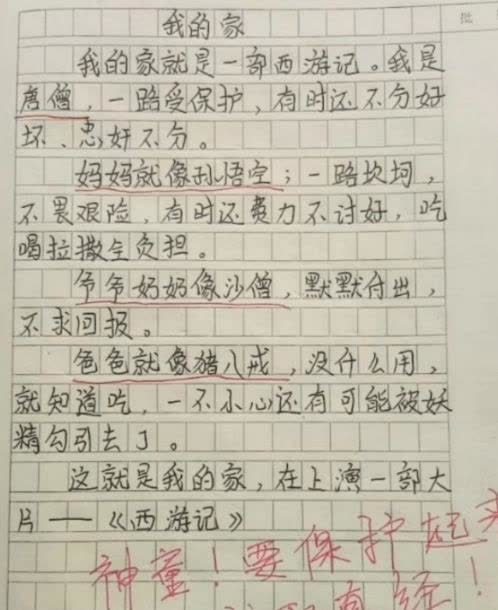 我的家
我的家就是一部西游记。我是
唐僧，一路受保护，有时还不分好
坏、忠奸不分。
妈妈就像孙悟空；一路坎坷，
不畏艰险，有时还费力不讨好，吃
喝拉撒全负担。
爷爷奶奶像沙僧，默默付出，
不求回报。
爸爸就像猪八戒，没什么用，
就知道吃，一不小心还有可能被妖
精勾引去了。
这就是我的家，在上演一部大
片——《西游记》
神童！要保护起来